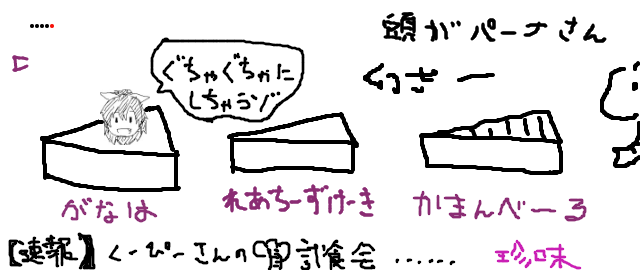 頭がパーナさん
ぐちゃぐちゃに
しちゃうゾ
くっさー
がなは
れあちーずけーき
かまんべーる
【速報】くーぴーさんの脳試食会……珍味